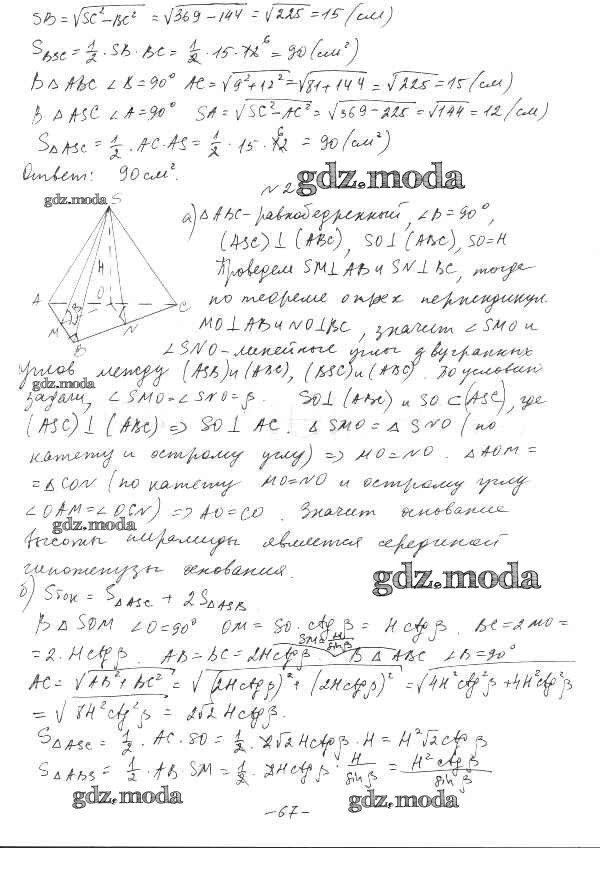 SB = √SC² − BC² = √369 − 144 = √225 = 15 (см)
S_BSC = 1/2 · SB · BC = 1/2 · 15 · 12 6 = 90 (см²)
В △ ABC ∠B = 90° AC = √9² + 12² = √81 + 144 = √225 = 15 (см)
В △ ASC ∠A = 90° SA = √SC² − AC² = √369 − 225 = √144 = 12 (см)
S△ASC = 1/2 · AC · AS = 1/2 · 15 · 12 6 = 90 (см²)
Ответ: 90 см².
№2
gdz.moda
gdz.moda
S
H
A
O
C
M
N
B
β
а) △ABC – равнобедренный, ∠B = 90°,
(ASC) ⊥ (ABC), SO ⊥ (ABC), SO = H
Проведем SM ⊥ AB и SN ⊥ BC, тогда
по теореме о трех перпендикул.
MO ⊥ AB и NO ⊥ BC, значит ∠SMO и
∠SNO – линейные углы двугранных
углов между (ASB) и (ABC), (BSC) и (ABC). По условию
gdz.moda
задачи, ∠SMO = ∠SNO = β. SO ⊥ (ABC) и SO ⊂ (ASC), где
(ASC) ⊥ (ABC) => SO ⊥ AC. △ SMO = △ SNO (по
катету и острому углу) => MO = NO. △AOM =
= △CON (по катету MO = NO и острому углу
∠OAM = ∠OCN) => AO = CO. Значит основание
gdz.moda
высоты пирамиды является серединой
гипотенузы основания.
gdz.moda
б) Sбок = S△ASC + 2S△ASB
В △ SOM ∠O = 90° OM = SO · ctg β = H ctg β. BC = 2MO =
SM = H/sin β
= 2 · H ctg β. AB = BC = 2H ctg β В △ ABC ∠B = 90°
AC = √AB² + BC² = √(2H ctg β)² + (2H ctg β)² = √4H² ctg² β + 4H² ctg² β
= √8H² ctg² β = 2√2 H ctg β.
S△ASC = 1/2 · AC · SO = 1/2 · 2√2 H ctg β · H = H²√2 ctg β
S△ABS = 1/2 · AB SM = 1/2 · 2H ctg β · H/sin β = H² ctg β/sin β
gdz.moda
gdz.moda
– 67 –